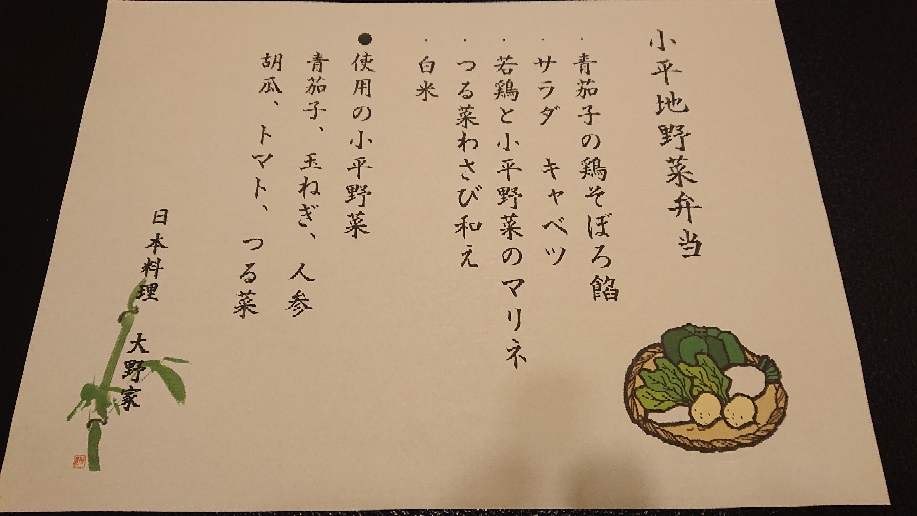 小平地野菜弁当
・青茄子の鶏そぼろ餡
・サラダ キャベツ
・若鶏と小平野菜のマリネ
・つる菜わさび和え
・白米
●使用の小平野菜
青茄子、玉ねぎ、人参
胡瓜、トマト、つる菜
日本料理 大野家